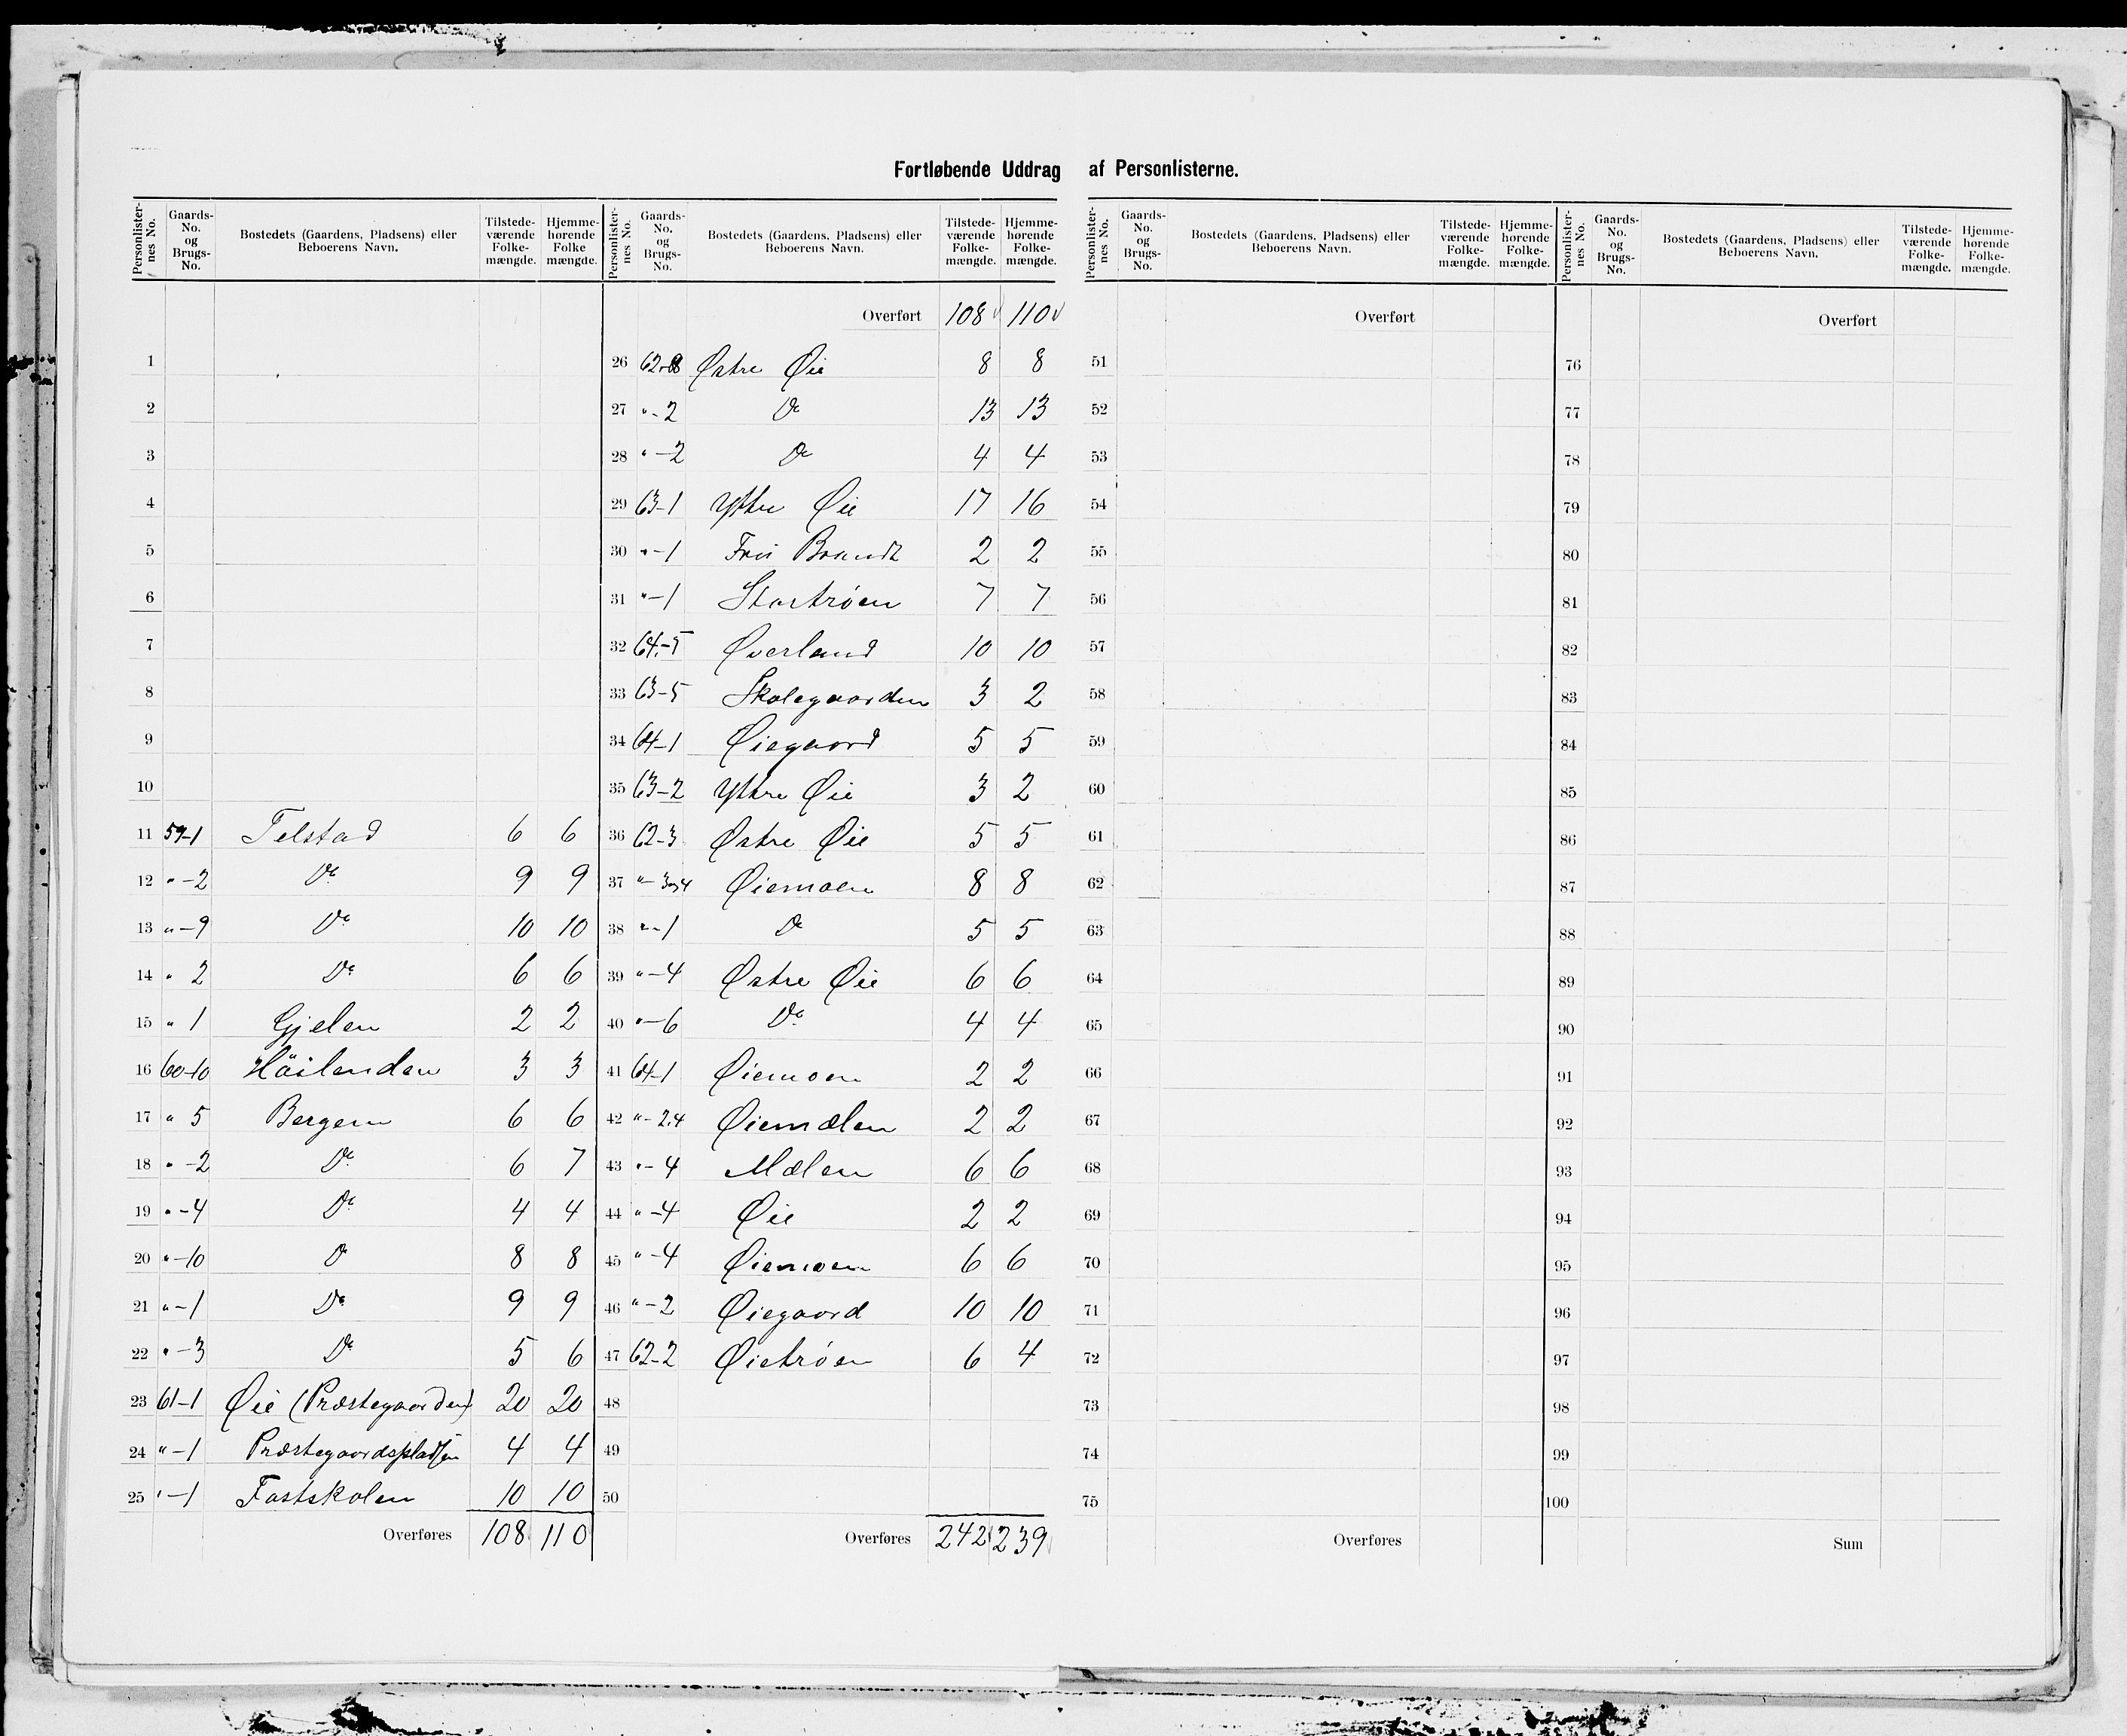 Fortløbende Uddrag af Personlisterne.
Personlister-nes No. | Gaards-No. og Brugs-No. | Bostedets (Gaardens, Pladsens) eller Beboerens Navn. | Tilstede-værende Folke-mængde. | Hjemme-hørende Folke mængde.
1
2
3
4
5
6
7
8
9
10
11 59-1 Telstad 6 6
12 " - 2 Do 9 9
13 " - 9 Do 10 10
14 " 2 Do 6 6
15 " 1 Gjelen 2 2
16 60-10 Höilenden 3 3
17 " 5 Bergem 6 6
18 " - 2 Do 6 7
19 " - 4 Do 4 4
20 " - 10 Do 8 8
21 " - 1 Do 9 9
22 " - 3 Do 5 6
23 61-1 Øie (Præstegaarden) 20 20
24 " - 1 Præstegaardspladsen 4 4
25 " - 1 Fastskolen 10 10
Overføres 108 110
Personlister-nes No. | Gaards-No. og Brugs-No. | Bostedets (Gaardens, Pladsens) eller Beboerens Navn. | Tilstede-værende Folke-mængde. | Hjemme-hørende Folke-mængde.
Overført 108 110
26 62-8 Østre Øie 8 8
27 " - 2 Do 13 13
28 " - 2 Do 4 4
29 63-1 Yttre Øie 17 16
30 " - 1 Fru Brandt 2 2
31 " - 1 Startrøen 7 7
32 64-5 Øverland 10 10
33 63-5 Skolegaarden 3 2
34 64-1 Øiegaard 5 5
35 63-2 Yttre Øie 3 2
36 62-3 Østre Øie 5 5
37 " - 3og4 Øiemoen 8 8
38 " - 1 Do 5 5
39 " - 4 Østre Øie 6 6
40 " - 6 Do 4 4
41 64-1 Øiemoen 2 2
42 " - 2.4 Øiemælen 2 2
43 " - 4 Mælen 6 6
44 " - 4 Øie 2 2
45 " - 4 Øiemoen 6 6
46 " - 2 Øiegaard 10 10
47 62-2 Øietrøen 6 4
48
49
50
Overføres 242 239
Personlister-nes No. | Gaards-No. og Brugs-No. | Bostedets (Gaardens, Pladsens) eller Beboerens Navn. | Tilstede-værende Folke-mængde. | Hjemme-hørende Folke-mængde.
Overført
51
52
53
54
55
56
57
58
59
60
61
62
63
64
65
66
67
68
69
70
71
72
73
74
75
Overføres
Personlister-nes No. | Gaards-No. og Brugs-No. | Bostedets (Gaardens, Pladsens) eller Beboerens Navn. | Tilstede-værende Folke-mængde. | Hjemme-hørende Folke-mængde.
Overført
76
77
78
79
80
81
82
83
84
85
86
87
88
89
90
91
92
93
94
95
96
97
98
99
100
Sum